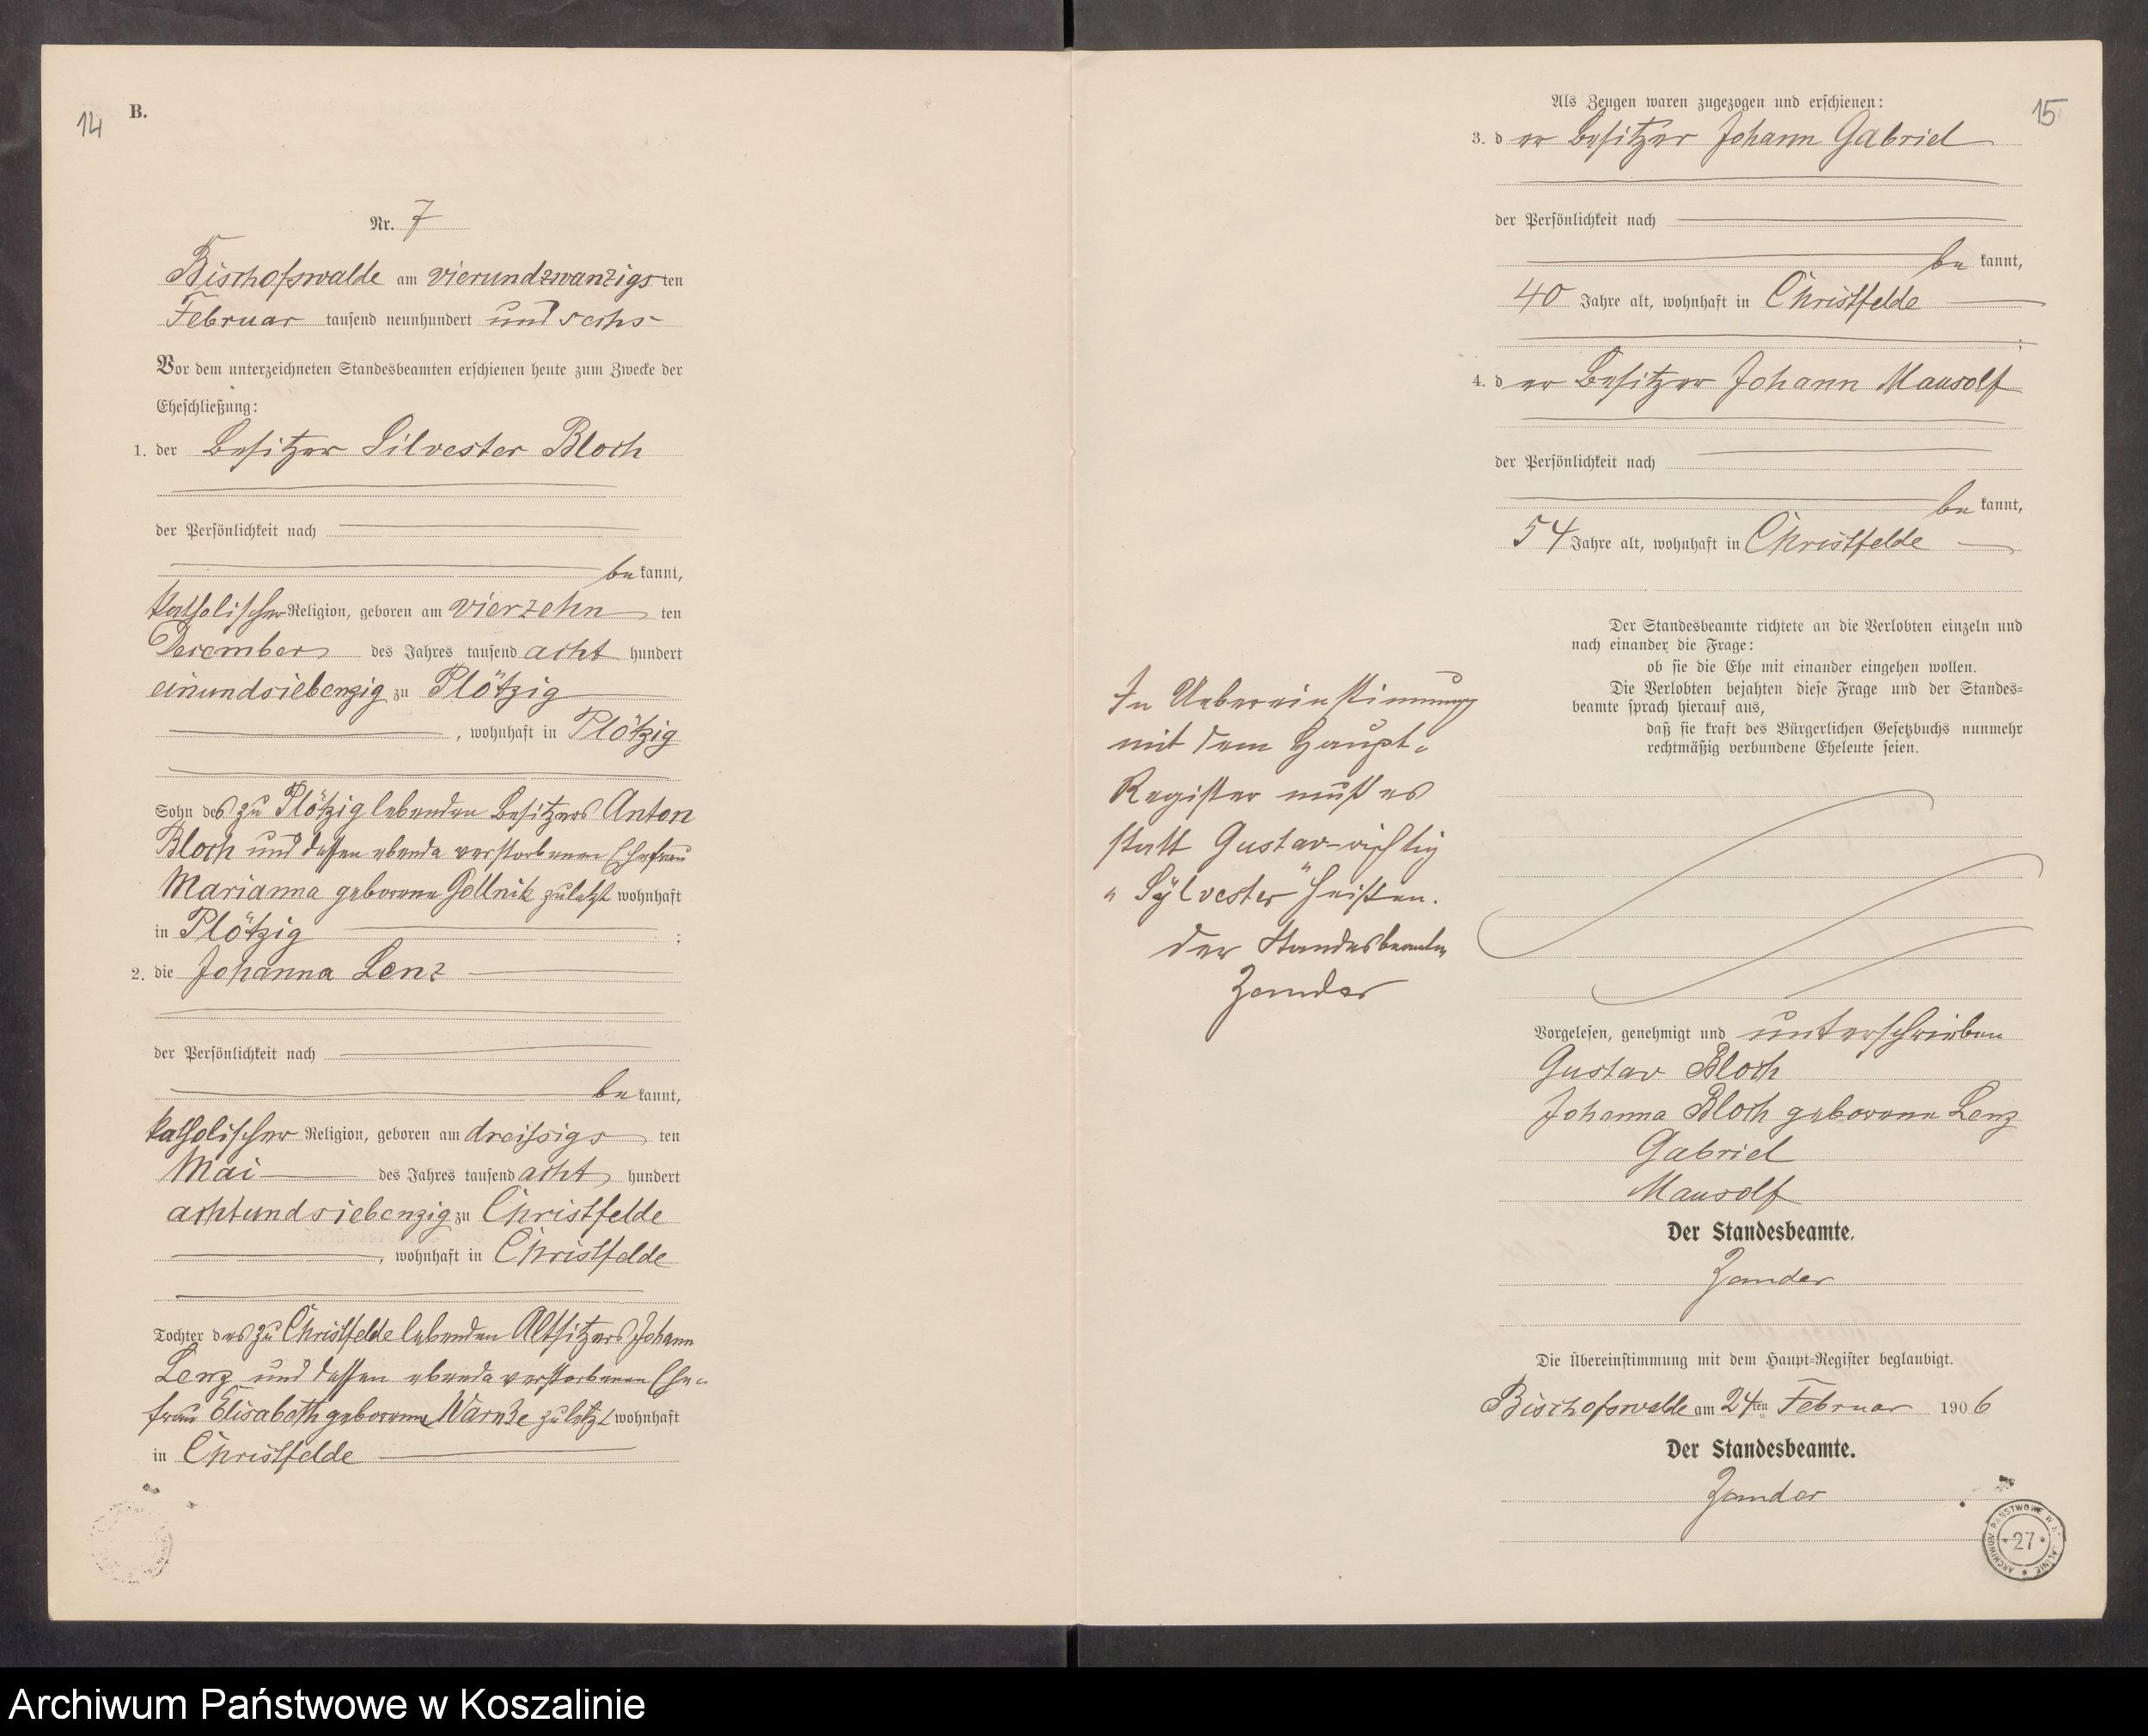 14
B.
Nr. 7
Bischofswalde am vierundzwanzigsten
Februar tausend neunhundert und sechs
Vor dem unterzeichneten Standesbeamten erschienen heute zum Zwecke der
Eheschließung:
1. der Besitzer Silvester Bloch
der Persönlichkeit nach
bekannt,
katholischer Religion, geboren am vierzehnten
December des Jahres tausend acht hundert
einundsiebenzig zu Plötzig
, wohnhaft in Plötzig
Sohn des zu Plötzig lebenden Besitzers Anton
Bloch und dessen ebenda verstorbenen Ehefrau
Marianna geborene Gollnik zuletzt wohnhaft
in Plötzig ;
2. die Johanna Lenz
der Persönlichkeit nach
bekannt,
katholischer Religion, geboren am dreissigsten
Mai des Jahres tausend acht hundert
achtundsiebenzig zu Christfelde
, wohnhaft in Christfelde
Tochter des zu Christfelde lebenden Altsitzers Johann
Lenz und dessen ebenda verstorbenen Ehe-
frau Elisabeth geborene Warnke zuletzt wohnhaft
in Christfelde
15
Als Zeugen waren zugezogen und erschienen:
3. der Besitzer Johann Gabriel
der Persönlichkeit nach
bekannt,
40 Jahre alt, wohnhaft in Christfelde
;
4. der Besitzer Johann Mausolf
der Persönlichkeit nach
bekannt,
54 Jahre alt, wohnhaft in Christfelde
Der Standesbeamte richtete an die Verlobten einzeln und
nach einander die Frage:
ob sie die Ehe mit einander eingehen wollen.
Die Verlobten bejahten diese Frage und der Standes-
beamte sprach hierauf aus,
daß sie kraft des Bürgerlichen Gesetzbuchs nunmehr
rechtmäßig verbundene Eheleute seien.
In Uebereinstimmung
mit dem Haupt-
Register muß es
statt Gustav-richtig
"Sÿlvester" heißen.
der Standesbeamte
Zander
Vorgelesen, genehmigt und unterschrieben
Gustav Bloch
Johanna Bloch geborene Lenz
Gabriel
Mausolf
Der Standesbeamte.
Zander
Die Übereinstimmung mit dem Haupt-Register beglaubigt.
Bischofswalde am 24ten Februar 1906
Der Standesbeamte.
Zander
ARCHIWUM PAŃSTWOWE W
27
Archiwum Państwowe w Koszalinie